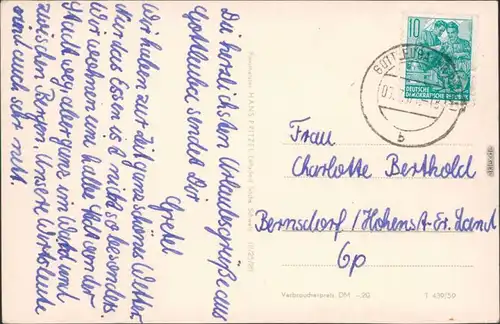 Die herzlichsten Urlaubsgrüße aus
Gottleuba sendet Dir
Gretel
Wir haben zur Zeit ganz schönes Wetter.
Nur das Essen is nicht so besonders.
Wir wohnen eine halbe Std. von der
Stadt weg, aber ganz im Wald und
zwischen Bergen. Unsere Wirtsleute
sind auch sehr nett.
10
DEUTSCHE
DEMOKRATISCHE REPUBLIK
b
Frau
Charlotte Berthold
Bernsdorf/Hohenst-Er. Land
Gp
Verbraucherpreis DM -,20
T 439/59